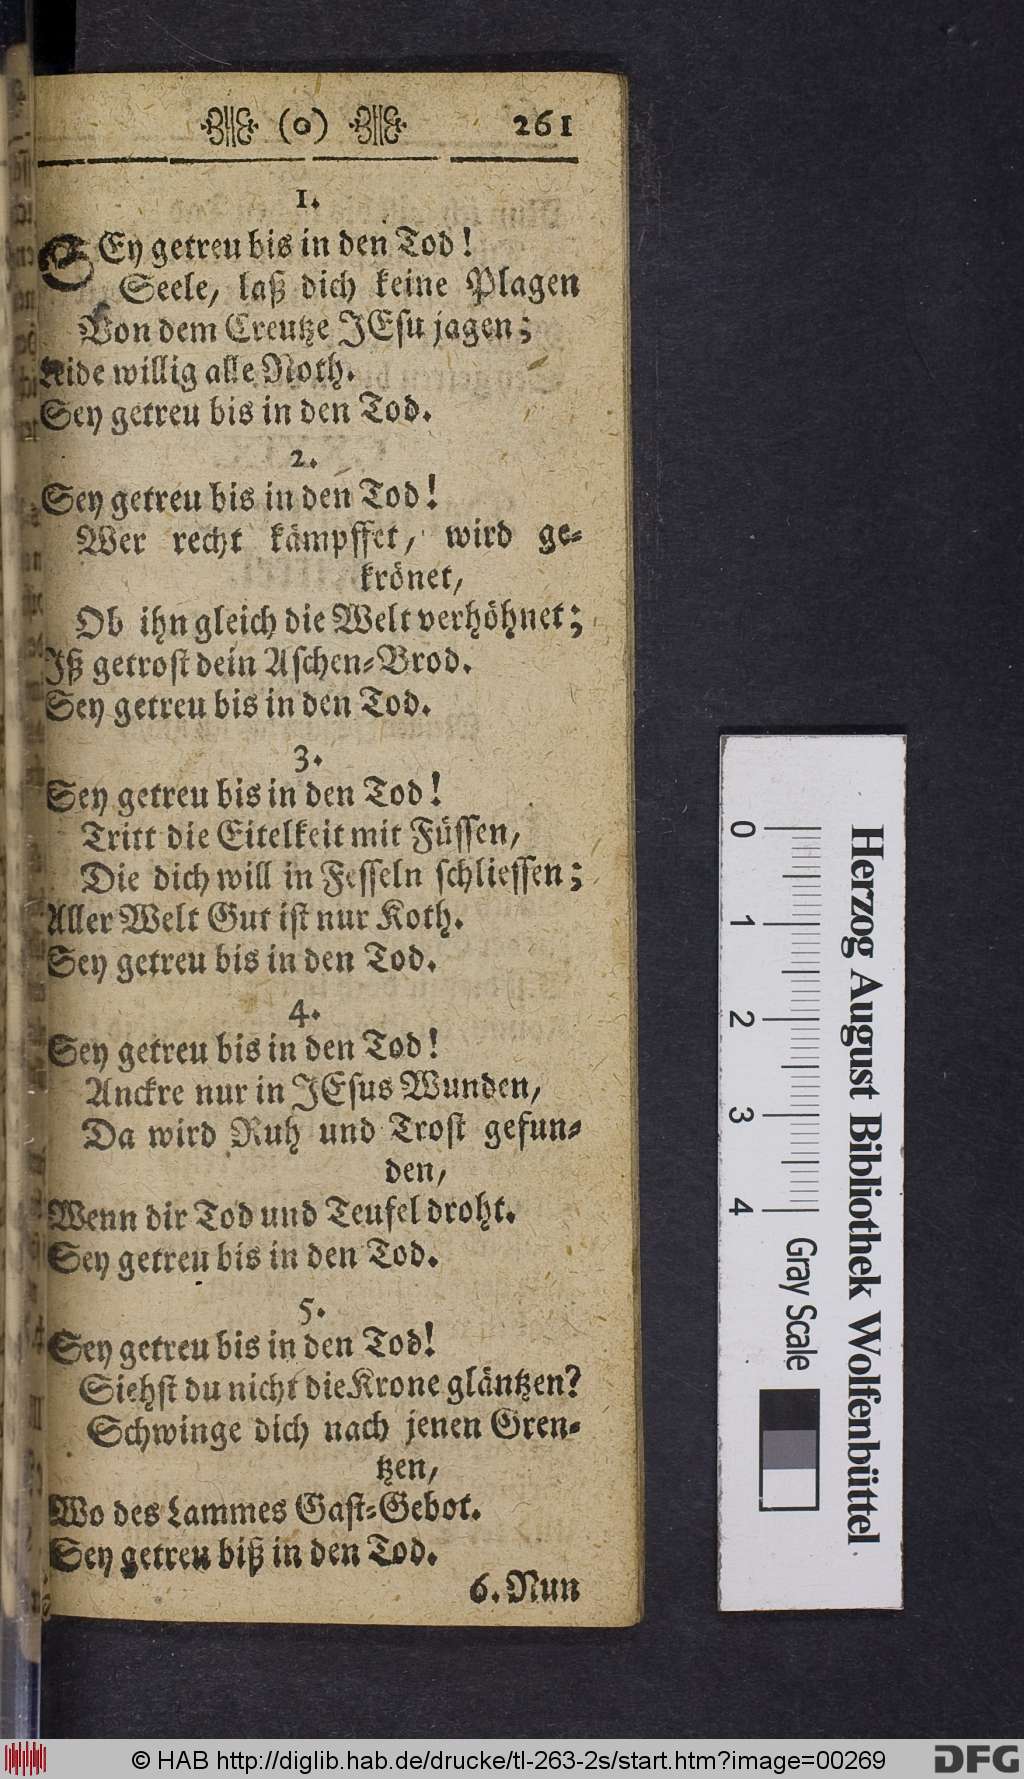 (o) 261
1.
SEy getreu bis in den Tod!
Seele, laß dich keine Plagen
Von dem Creutze JEsu jagen;
Leide willig alle Noth.
Sey getreu bis in den Tod.
2.
Sey getreu bis in den Tod!
Wer recht kämpffet, wird ge-
krönet,
Ob ihn gleich die Welt verhöhnet;
Iß getrost dein Aschen-Brod.
Sey getreu bis in den Tod.
3.
Sey getreu bis in den Tod!
Tritt die Eitelkeit mit Füssen,
Die dich will in Fesseln schliessen;
Aller Welt Gut ist nur Koth.
Sey getreu bis in den Tod.
4.
Sey getreu bis in den Tod!
Anckre nur in JEsus Wunden,
Da wird Ruh und Trost gefun-
den,
Wenn dir Tod und Teufel droht.
Sey getreu bis in den Tod.
5.
Sey getreu bis in den Tod!
Siehst du nicht die Krone gläntzen?
Schwinge dich nach jenen Gren-
tzen,
Wo des Lammes Gast-Gebot.
Sey getreu biß in den Tod.
6. Nun
Herzog August Bibliothek Wolfenbüttel
0 1 2 3 4 Gray Scale
© HAB http://diglib.hab.de/drucke/tl-263-2s/start.htm?image=00269
DFG